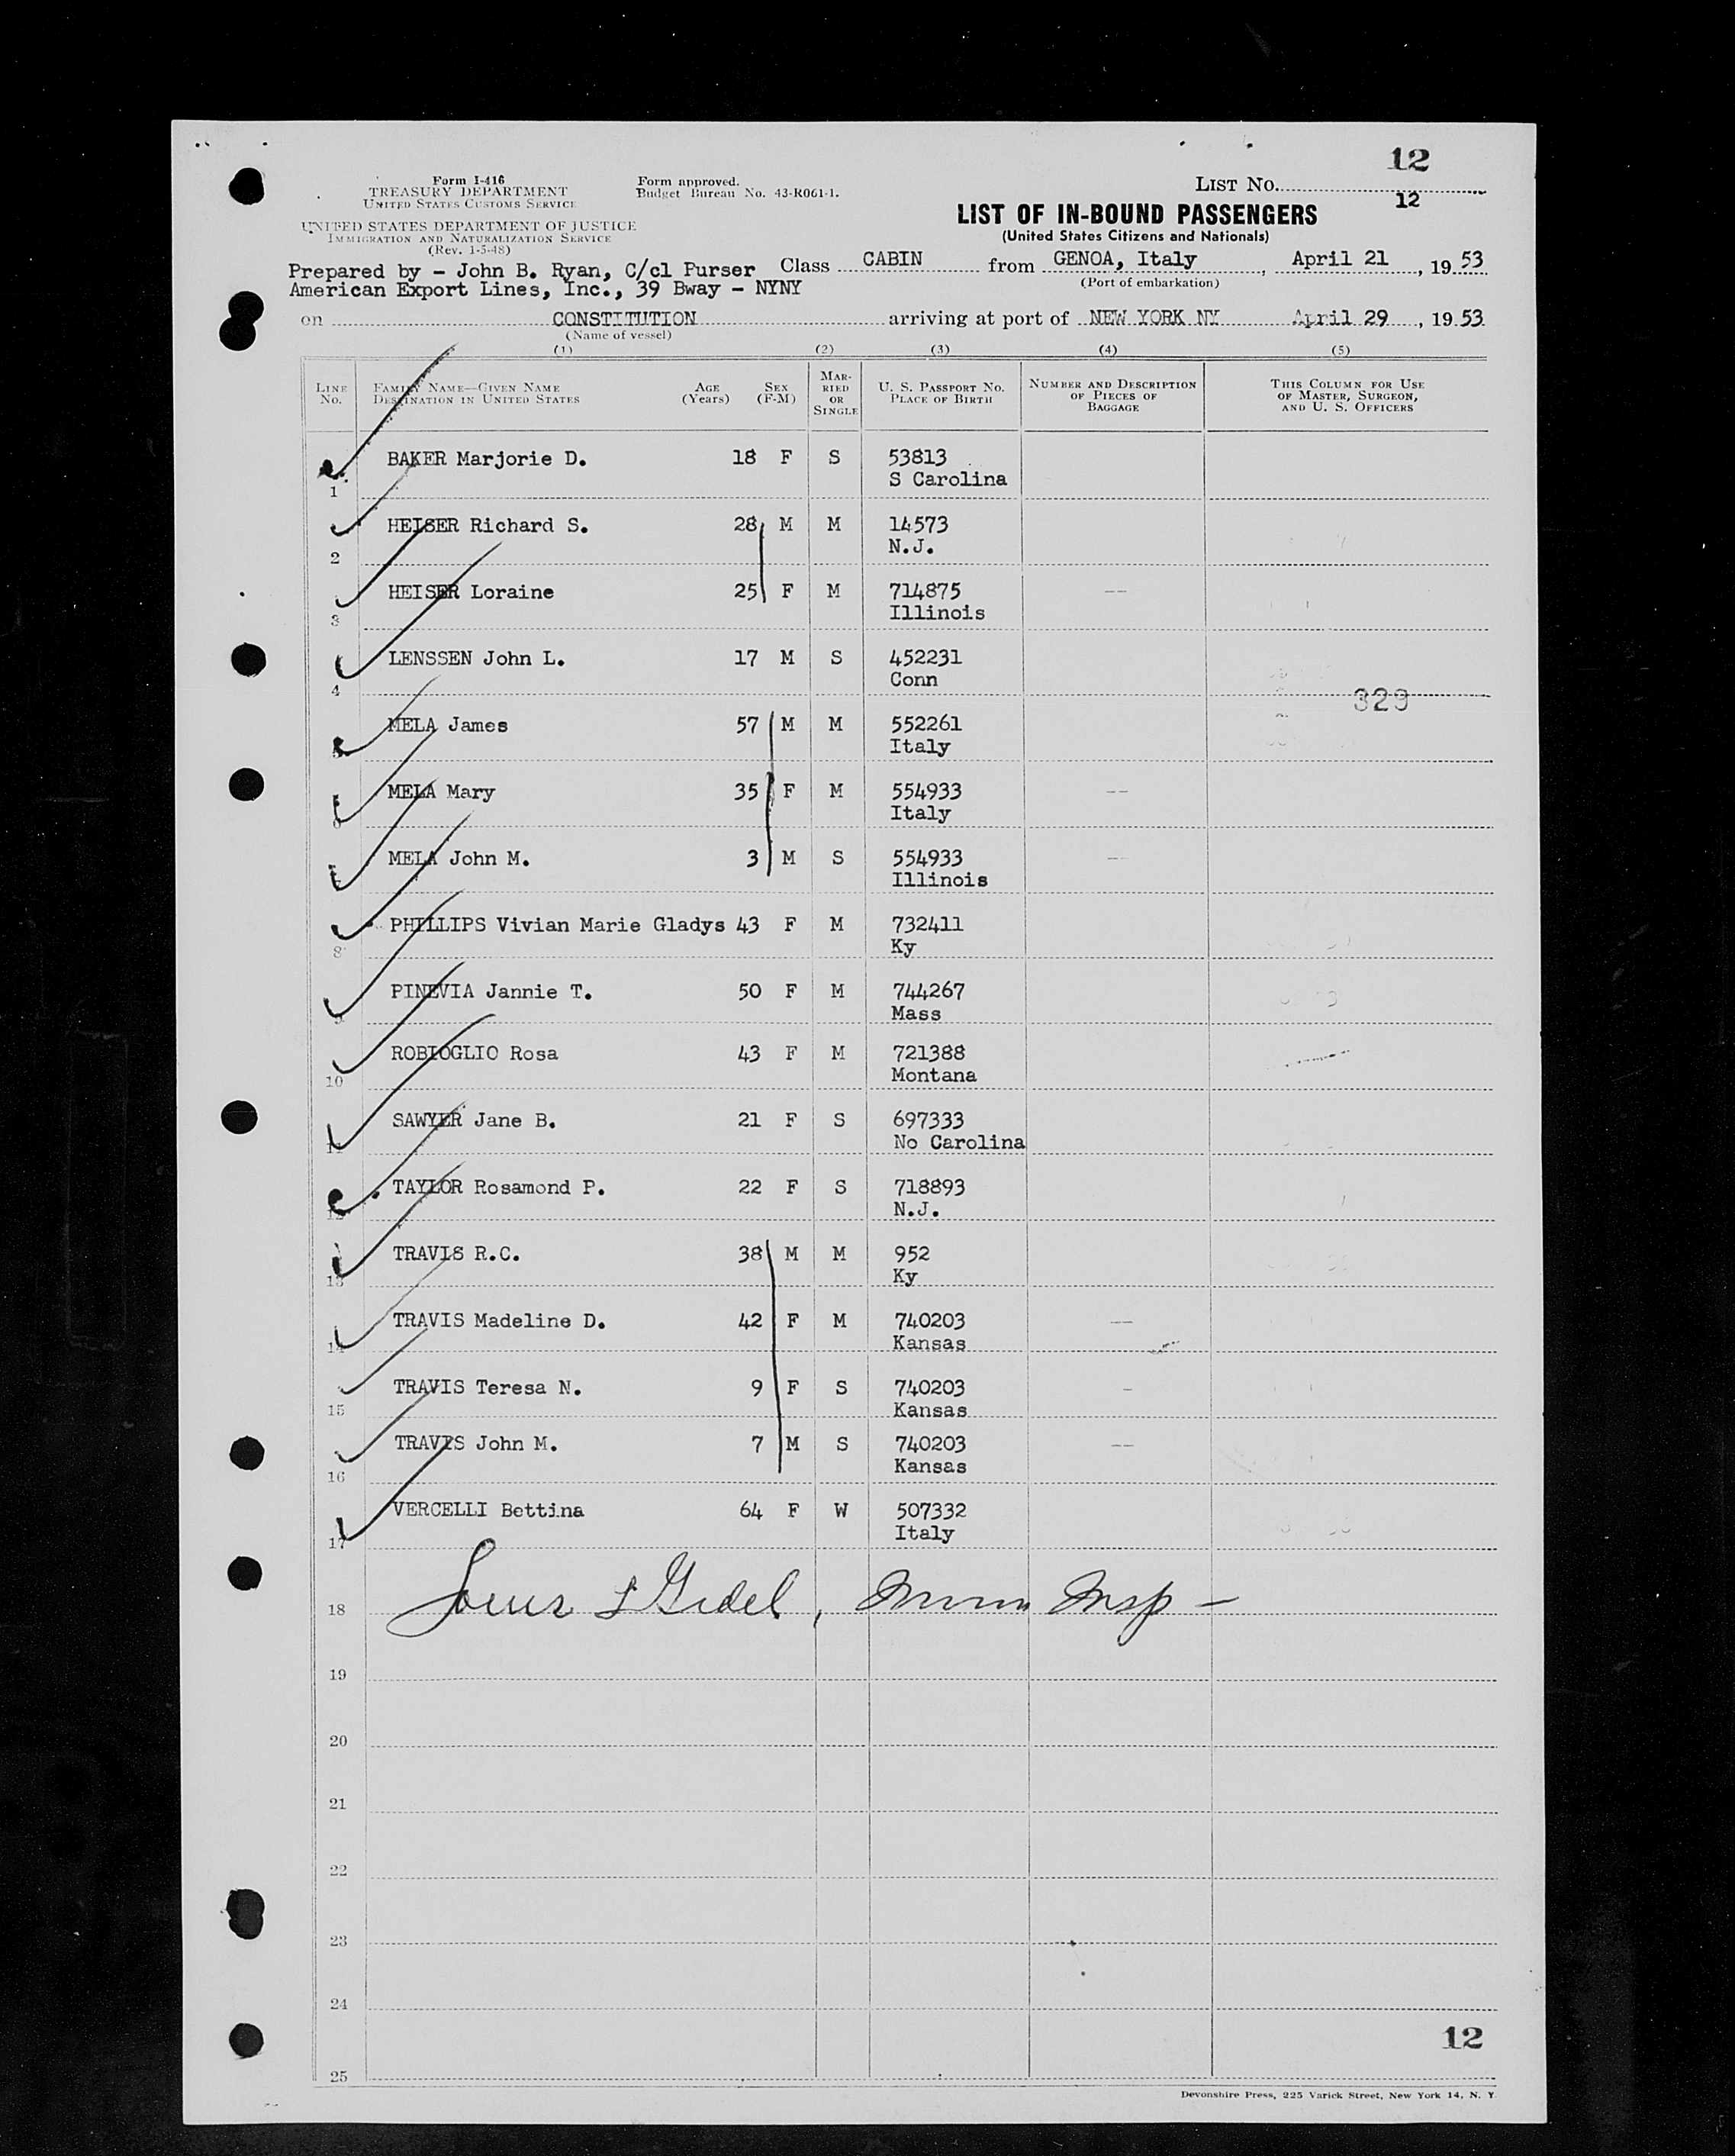 12
Form I-416
TREASURY DEPARTMENT
UNITED STATES CUSTOMS SERVICE
Form approved.
Budget Bureau No. 43-R061-1.
LIST No.
12
UNITED STATES DEPARTMENT OF JUSTICE
IMMIGRATION AND NATURALIZATION SERVICE
(Rev. 1-5-48)
LIST OF IN-BOUND PASSENGERS
(United States Citizens and Nationals)
Prepared by - John B. Ryan, C/cl Purser Class CABIN from GENOA, Italy, April 21, 19 53
American Export Lines, Inc., 39 Bway - NYNY (Port of embarkation)
on CONSTITUTION arriving at port of NEW YORK NY April 29, 19 53
(Name of vessel)
(1) (2) (3) (4) (5)
LINE No. FAMILY NAME—GIVEN NAME DESTINATION IN UNITED STATES AGE (Years) SEX (F-M) MARRIED OR SINGLE U. S. PASSPORT No. PLACE OF BIRTH NUMBER AND DESCRIPTION OF PIECES OF BAGGAGE THIS COLUMN FOR USE OF MASTER, SURGEON, AND U. S. OFFICERS
BAKER Marjorie D. 18 F S 53813
1 S Carolina
HEISER Richard S. 28 M M 14573
2 N.J.
HEISER Loraine 25 F M 714875 --
3 Illinois
LENSSEN John L. 17 M S 452231
4 Conn
329
MELA James 57 M M 552261
5 Italy
MELA Mary 35 F M 554933 --
6 Italy
MELA John M. 3 M S 554933 --
7 Illinois
PHILLIPS Vivian Marie Gladys 43 F M 732411
8 Ky
PINEVIA Jannie T. 50 F M 744267
9 Mass
ROBIOGLIO Rosa 43 F M 721388
10 Montana
SAWYER Jane B. 21 F S 697333
11 No Carolina
TAYLOR Rosamond P. 22 F S 718893
12 N.J.
TRAVIS R.C. 38 M M 952
13 Ky
TRAVIS Madeline D. 42 F M 740203 --
14 Kansas
TRAVIS Teresa N. 9 F S 740203 -
15 Kansas
TRAVIS John M. 7 M S 740203 --
16 Kansas
VERCELLI Bettina 64 F W 507332
17 Italy
18 Insp -
19
20
21
22
23
24
12
25
Devonshire Press, 225 Varick Street, New York 14, N. Y.